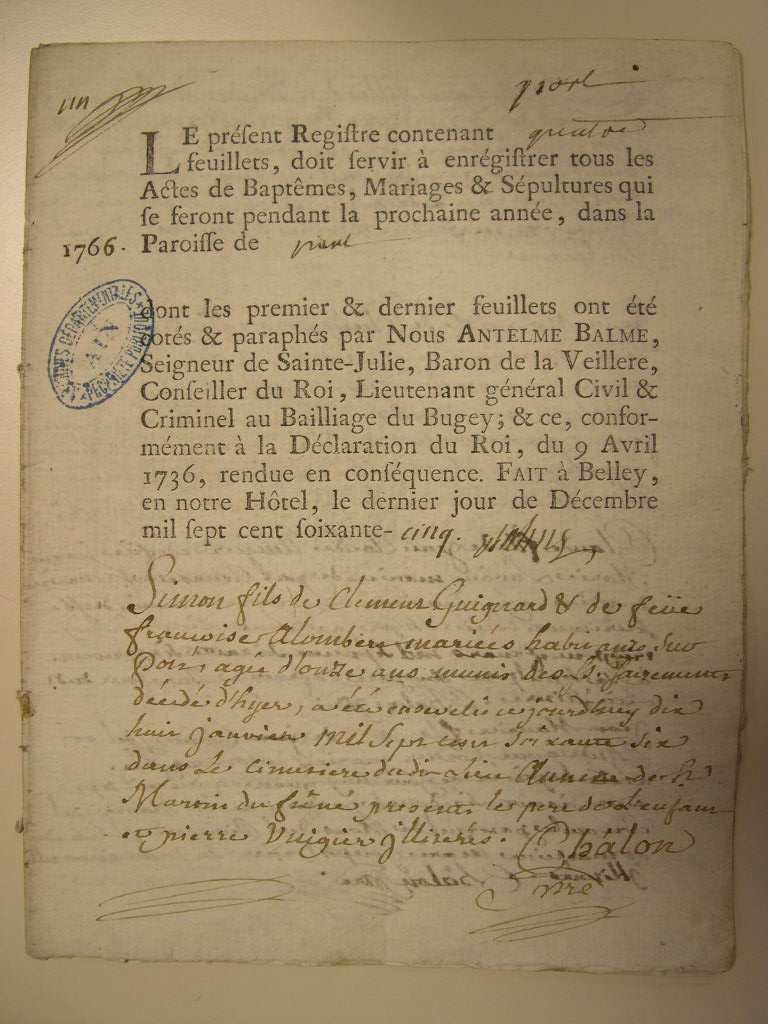 un
LE préſent Regiſtre contenant quatre
feuillets, doit ſervir à enrégiſtrer tous les
Actes de Baptêmes, Mariages & Sépultures qui
ſe feront pendant la prochaine année, dans la
1766. Paroiſſe de
dont les premier & dernier feuillets ont été
cotés & paraphés par Nous ANTELME BALME,
Seigneur de Sainte-Julie, Baron de la Veillere,
Conſeiller du Roi, Lieutenant général Civil &
Criminel au Bailliage du Bugey; & ce, confor-
mément à la Déclaration du Roi, du 9 Avril
1736, rendue en conſéquence. FAIT à Belley,
en notre Hôtel, le dernier jour de Décembre
mil ſept cent ſoixante-cinq.
ARCHIVES DÉPARTEMENTALES
AIN
Simon fils de Clement Guignard & de feüe
francoise Alombert mariées habitants sur
agée d'onze ans munis des S. sacrements
décédé d'hyer, a été enseveli cejourdhuy dix
huit janvier mil sept cent soixante six
dans le cimetiere dudit lieu annexe de St
Martin du frêne presents le pere de l'enfant
et pierre illiterés. Chalon
vre